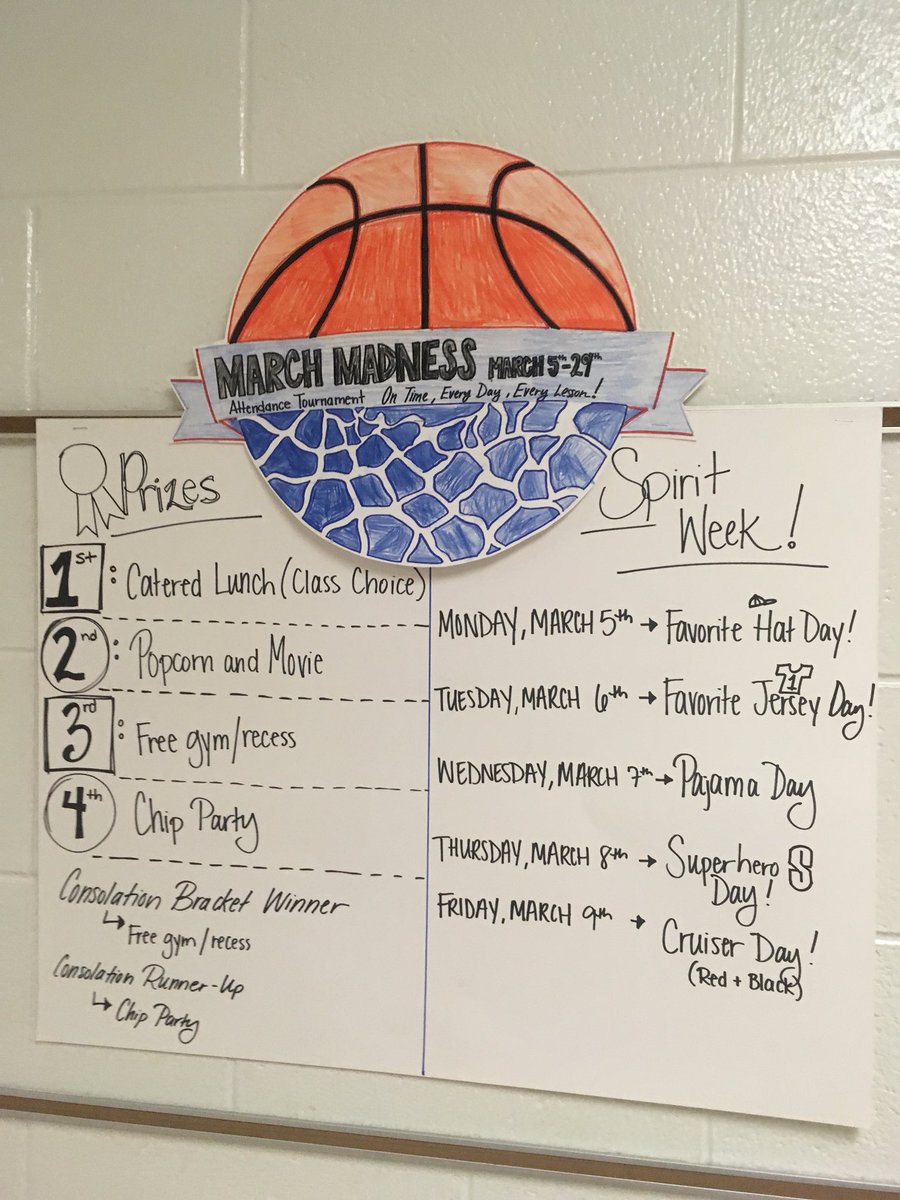 MARCH MADNESS MARCH 5th-29th
Attendance Tournament On Time, Every Day, Every Lesson!
Prizes
1st: Catered Lunch (Class Choice)
2nd: Popcorn and Movie
3rd: Free gym/recess
4th Chip Party
Consolation Bracket Winner
↳ Free gym/recess
Consolation Runner-Up
↳ Chip Party
Spirit
Week!
MONDAY, MARCH 5th → Favorite Hat Day!
1
TUESDAY, MARCH 6th → Favorite Jersey Day!
WEDNESDAY, MARCH 7th → Pajama Day
THURSDAY, MARCH 8th → Superhero S
Day!
FRIDAY, MARCH 9th → Cruiser Day!
(Red + Black)